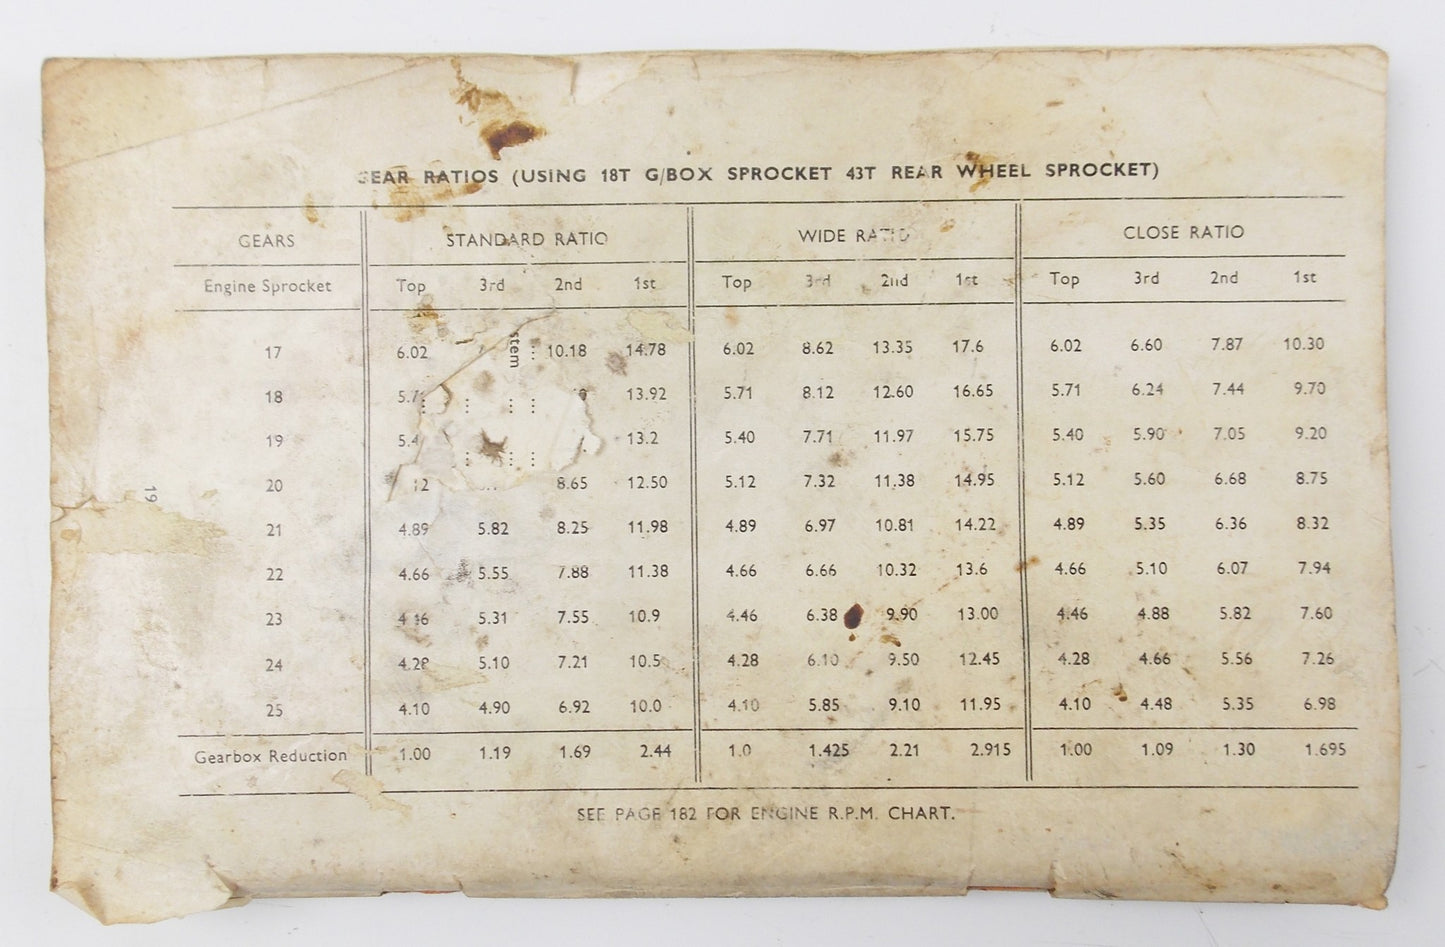 GEAR RATIOS (USING 18T G/BOX SPROCKET 43T REAR WHEEL SPROCKET)
GEARS STANDARD RATIO WIDE RATIO CLOSE RATIO
Engine Sprocket Top 3rd 2nd 1st Top 3rd 2nd 1st Top 3rd 2nd 1st
stem
17 6.02 10.18 14.78 6.02 8.62 13.35 17.6 6.02 6.60 7.87 10.30
18 13.92 5.71 8.12 12.60 16.65 5.71 6.24 7.44 9.70
19 13.2 5.40 7.71 11.97 15.75 5.40 5.90 7.05 9.20
20 8.65 12.50 5.12 7.32 11.38 14.95 5.12 5.60 6.68 8.75
19
21 4.89 5.82 8.25 11.98 4.89 6.97 10.81 14.22 4.89 5.35 6.36 8.32
22 4.66 5.55 7.88 11.38 4.66 6.66 10.32 13.6 4.66 5.10 6.07 7.94
23 4.46 5.31 7.55 10.9 4.46 6.38 9.90 13.00 4.46 4.88 5.82 7.60
24 4.28 5.10 7.21 10.5 4.28 6.10 9.50 12.45 4.28 4.66 5.56 7.26
25 4.10 4.90 6.92 10.0 4.10 5.85 9.10 11.95 4.10 4.48 5.35 6.98
Gearbox Reduction 1.00 1.19 1.69 2.44 1.0 1.425 2.21 2.915 1.00 1.09 1.30 1.695
SEE PAGE 182 FOR ENGINE R.P.M. CHART.